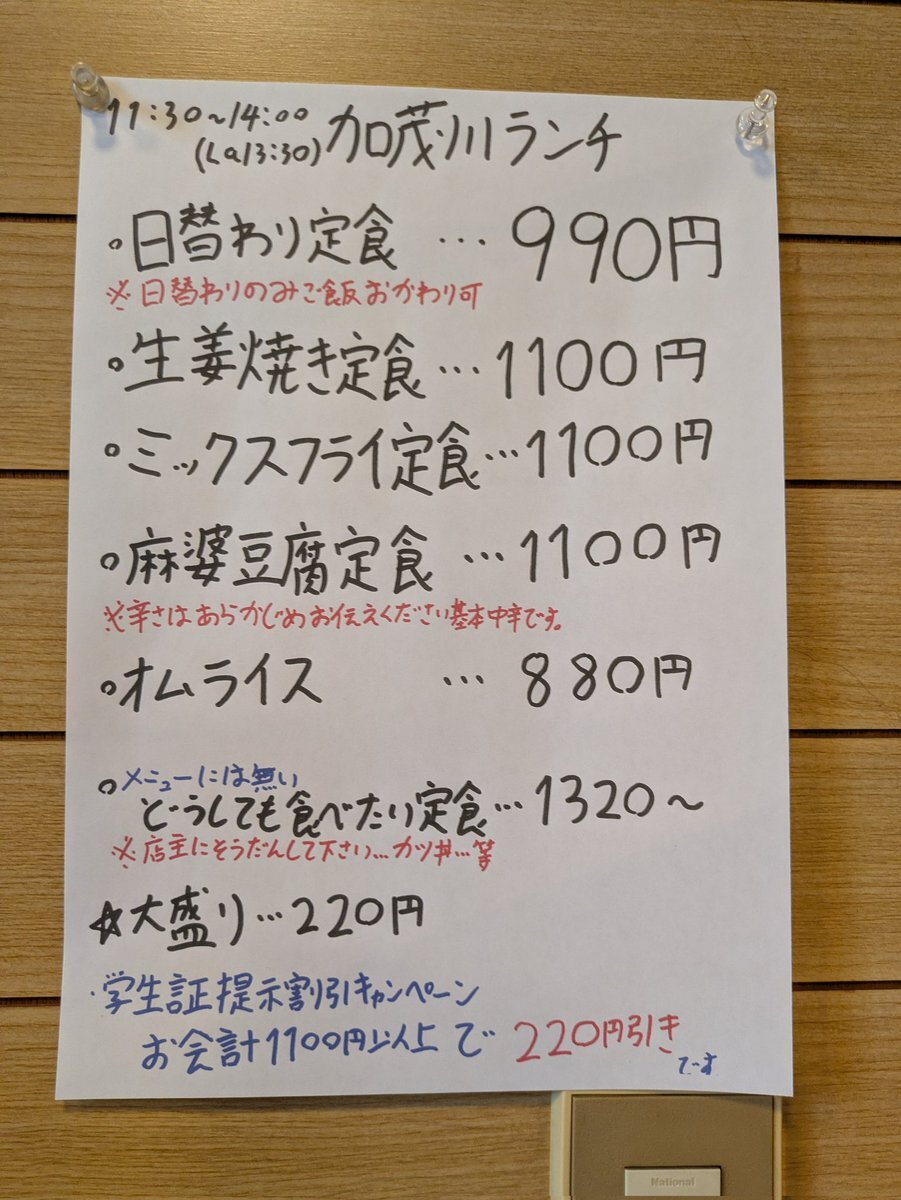 11:30~14:00 加茂川ランチ
(La13:30)
。日替わり定食 … 990円
※日替わりのみご飯おかわり可
。生姜焼き定食…1100円
。ミックスフライ定食…1100円
。麻婆豆腐定食 …1100円
※辛さはあらかじめお伝えください基本中辛です。
。オムライス … 880円
。メニューには無い
どうしても食べたい定食…1320～
※店主にそうだんして下さい…カツ丼…等
☆大盛り…220円
・学生証提示割引キャンペーン
お会計1100円以上で 220円引き
です
National